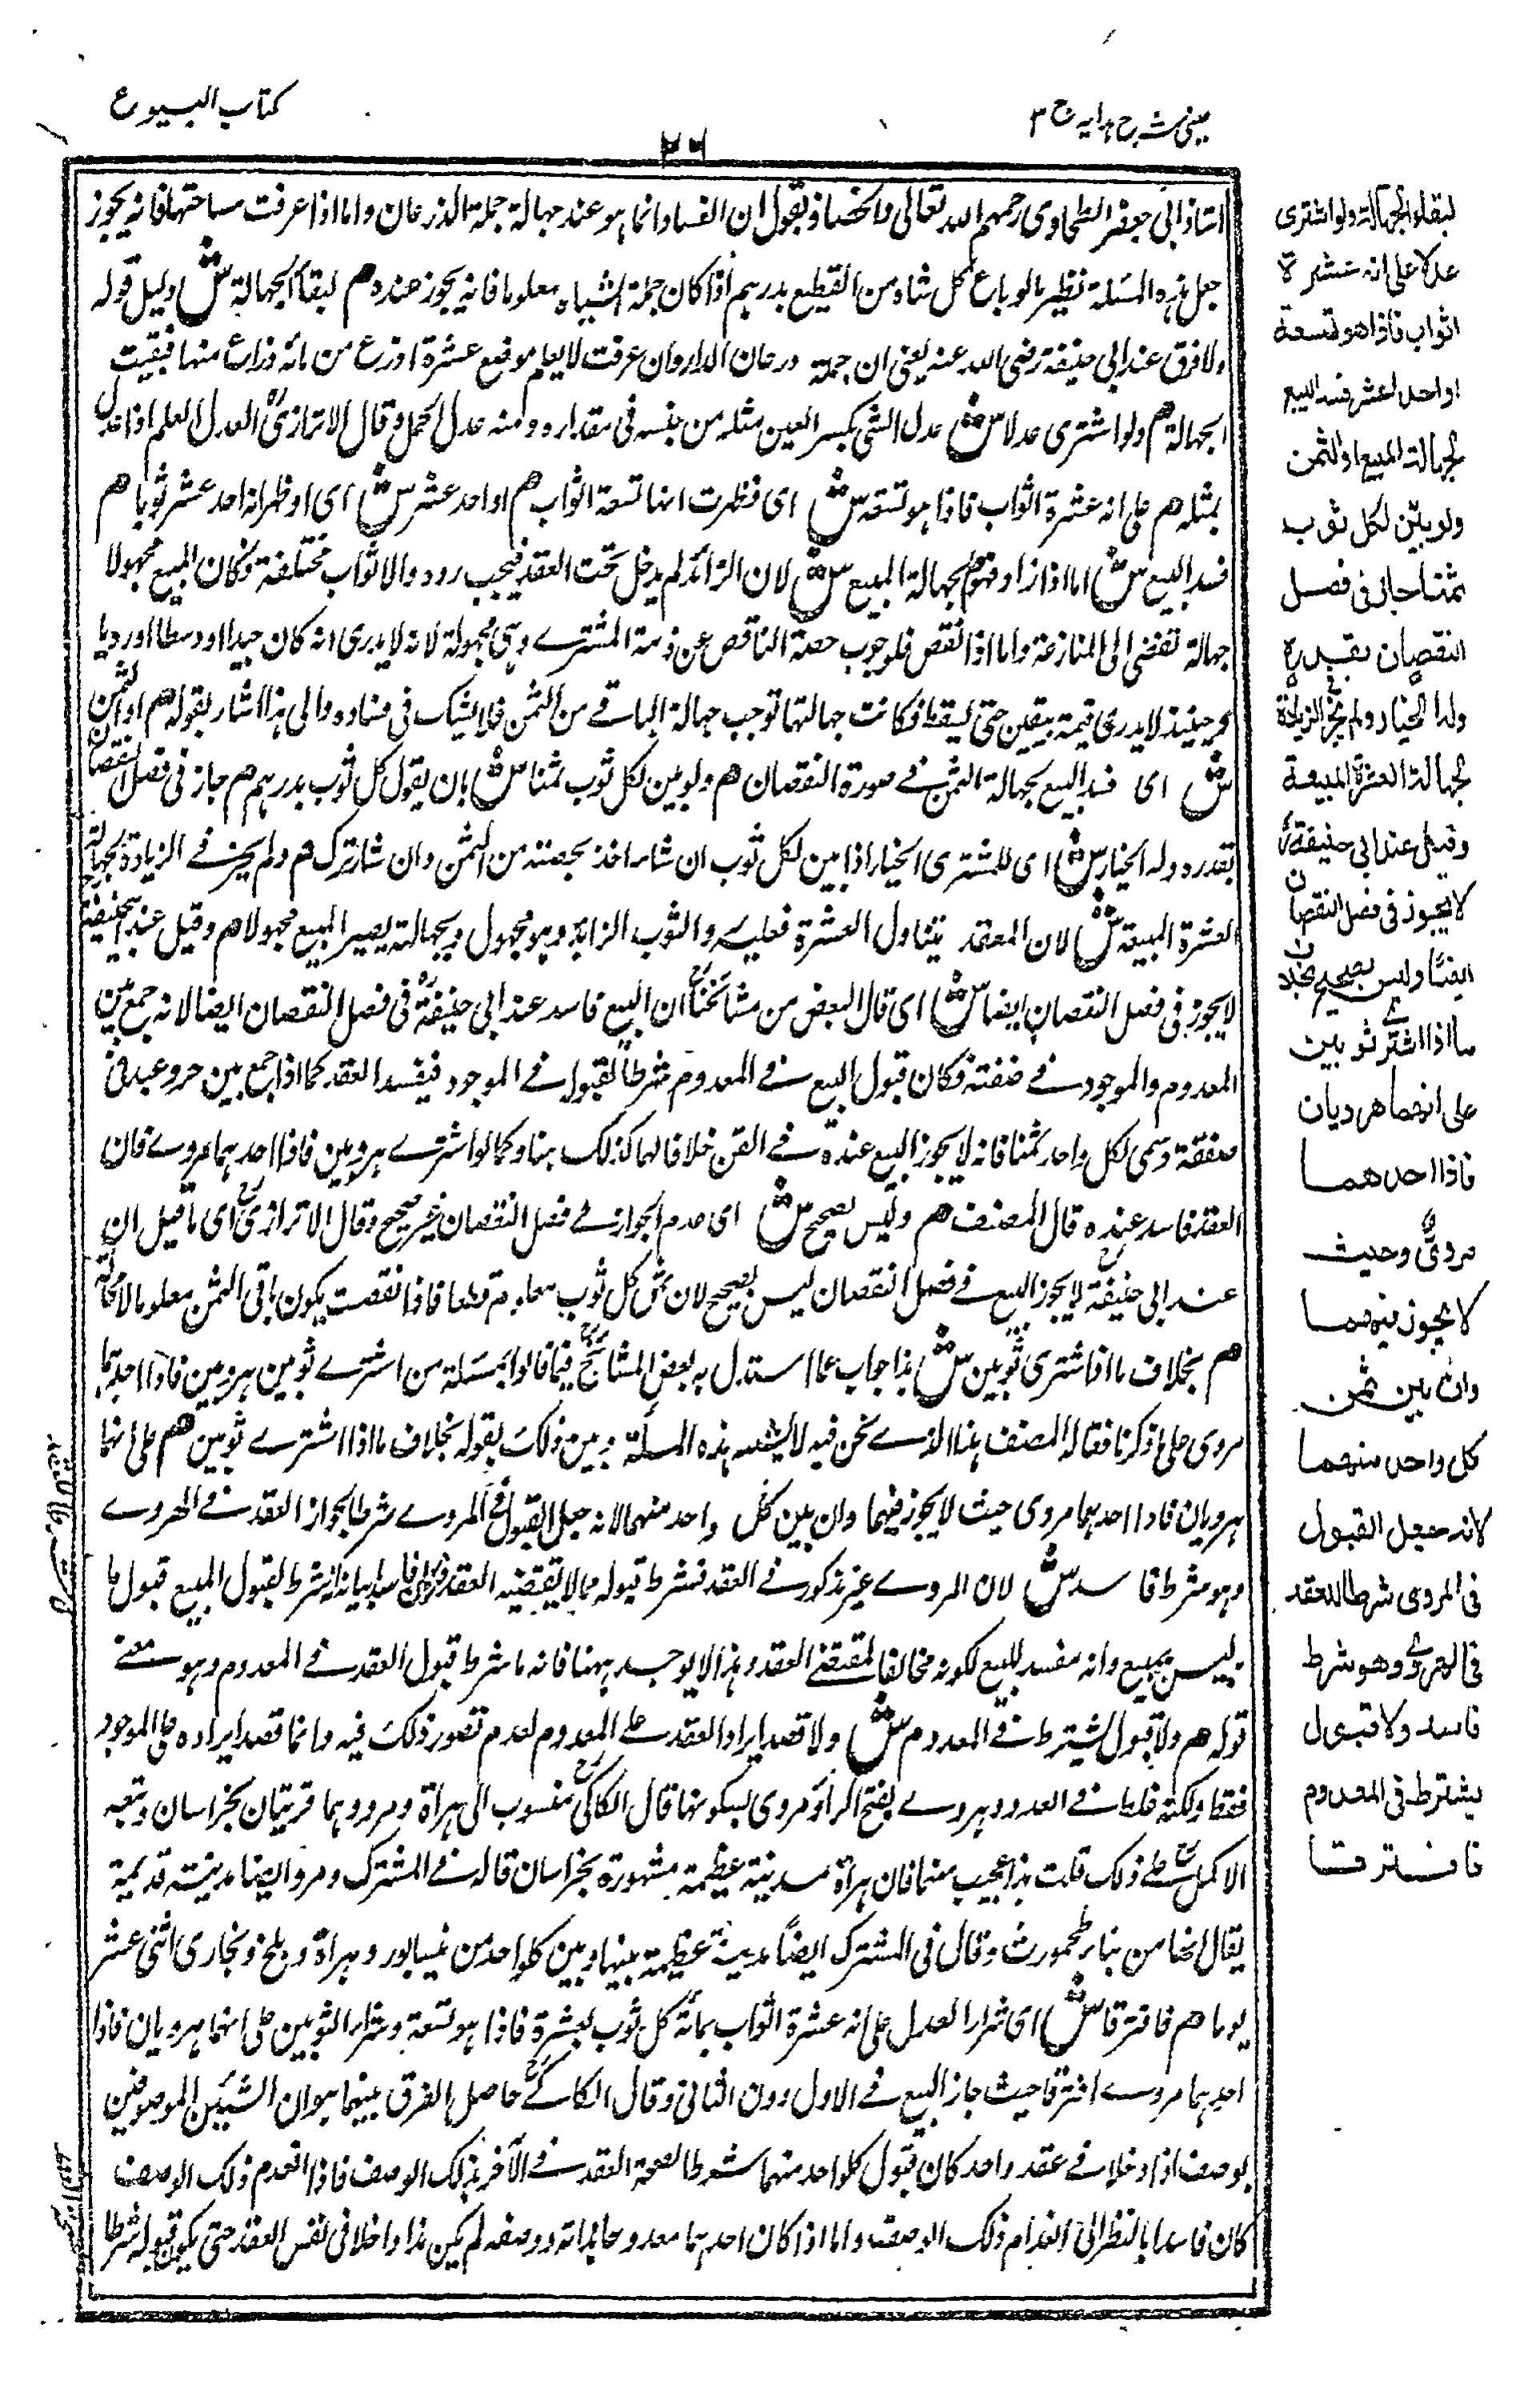 عينى شرح هدايه ج ٣
٢٦
كتاب البيوع
استاذ ابى جعفر الطحاوى رحمهم الله تعالى والخصاف يقول ان الفساد انما هو عند جهالة جملة الذرعان واما اذا عرفت مساحتها فانه يجوز
جعل هذه المسئلة نظير ما لو باع كل شاة من القطيع بدرهم اذا كان جملة الشياه معلوما فانه يجوز عنده هم لبقاء الجهالة ش دليل قوله
ولا فرق عند ابى حنيفة رضى الله عنه يعنى ان جملة درعان الدار وان عرفت لا يعلم موضع عشرة اذرع من مائة ذراع منها فبقيت
الجهالة هم ولو اشترى عدلا ش عدل الشئ بكسر العين مثله من جنسه فى مقداره ومنه عدل الحمل وقال الاترازى العدل العلم اذا عدل
بمثله هم على انه عشرة اثواب فاذا هو تسعة ش اى فظهرت انها تسعة اثواب هم او احد عشر ش اى او ظهر انه احد عشر ثوبا هم
فسد البيع ش اما اذا زاد فهو هم لجهالة المبيع ش لان الزائد لم يدخل تحت العقد فيجب رده والاثواب مختلفة فكان المبيع مجهولا
جهالة تفضى الى المنازعة واما اذا نقص فلوجوب حصة الناقص عن ذمة المشترے وهى مجهولة لانه لا يدرى انه كان جيدا او وسطا او رديا
وحينئذ لا يدرى قيمة بيقين حتى يسقط فكانت جهالتها توجب جهالة الباقے من الثمن فلا يشك فى فساده والى هذا اشار بقوله هم او الثمن
ش اى فسد البيع لجهالة الثمن فے صورة النقصان هم ولو بين لكل ثوب ثمنا ش بان يقول كل ثوب بدرهم هم جاز فى فصل النقصان
بقدره وله الخيار ش اى للمشترى الخيار اذا بين لكل ثوب ان شاء اخذ بحصته من الثمن وان شاء ترك هم ولم يجز فے الزيادة لجهالة
العشرة المبيعة ش لان العقد يتناول العشرة فعليه رد الثوب الزائد وهو مجهول وبجهالته يصير المبيع مجهولا هم وقيل عند ابيحنيفة
لا يجوز فى فصل النقصان ايضا ش اى قال البعض من مشائخنا ان البيع فاسد عند ابى حنيفة فى فصل النقصان ايضا لانه جمع بين
المعدوم والموجود فے صفقة فكان قبول البيع فے المعدوم شرطا لقبوله فے الموجود فيفسد العقد كما اذا جمع بين حر وعبد فى
صفقة وسمى لكل واحد ثمنا فانه لا يجوز البيع عنده فے القن خلافا لهما كذلك هنا وكما لو اشترے هرويين فاذا احدهما مروے فان
العقد فاسد عنده قال المصنف هم وليس بصحيح ش اى عدم الجواز فے فصل النقصان غير صحيح وقال الاترازى اى ما قيل ان
عند ابى حنيفة لا يجوز البيع فے فصل النقصان ليس بصحيح لان ثمن كل ثوب معلوم قطعا فاذا نقصت يكون باقى الثمن معلوما لا محالة
هم بخلاف ما اذا اشترى ثوبين ش هذا جواب عما استدل به بعض المشائخ فيما قالوا بمسئلة من اشترے ثوبين هرويين فاذا احدهما
مروى على ما ذكرنا فقال المصنف هنا الذے نحن فيه لا يشبه هذه المسئلة وبين ذلك بقوله بخلاف ما اذا اشترے ثوبين هم على انهما
هرويان فاذا احدهما مروى حيث لا يجوز فيهما وان بين كل واحد منهما لانه جعل القبول فے المروے شرطا لجواز العقد فے الهروے
وهو شرط فاسد ش لان المروے غير مذكور فے العقد فشرط قبوله مما لا يقتضيه العقد فكان فاسدا بيانه انه شرط لقبول المبيع قبول ما
ليس بمبيع وانه مفسد للبيع لكونه مخالفا لمقتضے العقد وهذا لا يوجد ههنا فانه ما شرط قبول العقد فے المعدوم وهو معنے
قوله هم ولا قبول يشترط فے المعدوم ش ولا قصد ايراد العقد علے المعدوم لعدم تصور ذلك فيه وانما قصد ايراده على الموجود
فقط ولكنه غلط فے العدد وهروے بفتح الراء ومروى بسكونها قال الكاكى منسوب الى هراة ومرو وهما قريتان بخراسان وتبعه
الاكمل علے ذلك قلت هذا عجيب منهما فان هراة مدينة عظيمة مشهورة بخراسان قاله فے المشترك ومرو ايضا مدينة قديمة
يقال انها من بناء طهمورث وقال فى المشترك ايضاً مدينة عظيمة بينها وبين كلواحد من نيسابور وهراة وبلخ وبخارى اثنى عشر
يوما هم فافترقا ش اى شراء العدل على انه عشرة اثواب بمائة كل ثوب بعشرة فاذا هو تسعة وشراء الثوبين على انهما هرويان فاذا
احدهما مروے افترقا حيث جاز البيع فے الاول دون الثانى وقال الكاكے حاصل الفرق بينهما هو ان الشيئين الموصوفين
بوصف اذا دخلا فے عقد واحد كان قبول كلواحد منهما شرطا لصحة العقد فے الآخر بذلك الوصف فاذا انعدم ذلك الوصف
كان فاسدا بالنظر الى انعدام ذلك الوصف واما اذا كان احدهما معدوما بذاته ووصفه لم يكن هذا داخلا فى نفس العقد حتى يكون قبوله شرطا
لبقاء الجهالة ولو اشترى
عدلا على انه عشرة
اثواب فاذا هو تسعة
او احد عشر فسد البيع
لجهالة المبيع او الثمن
ولو بيّن لكل ثوب
ثمنا جاز فى فصل
النقصان بقدره
وله الخيار ولم يجز الزيادة
لجهالة العشرة المبيعة
وقيل عند ابى حنيفة
لا يجوز فى فصل النقصان
ايضًا وليس بصحيح بخلاف
ما اذا اشترے ثوبين
على انهما هرويان
فاذا احدهما
مروىٌّ وحيث
لا يجوز فيهما
وان بين ثمن
كل واحد منهما
لانه جعل القبول
فى المروى شرطا للعقد
فى الهروے وهو شرط
فاسد ولا قبول
يشترط فى المعدوم
فافترقا